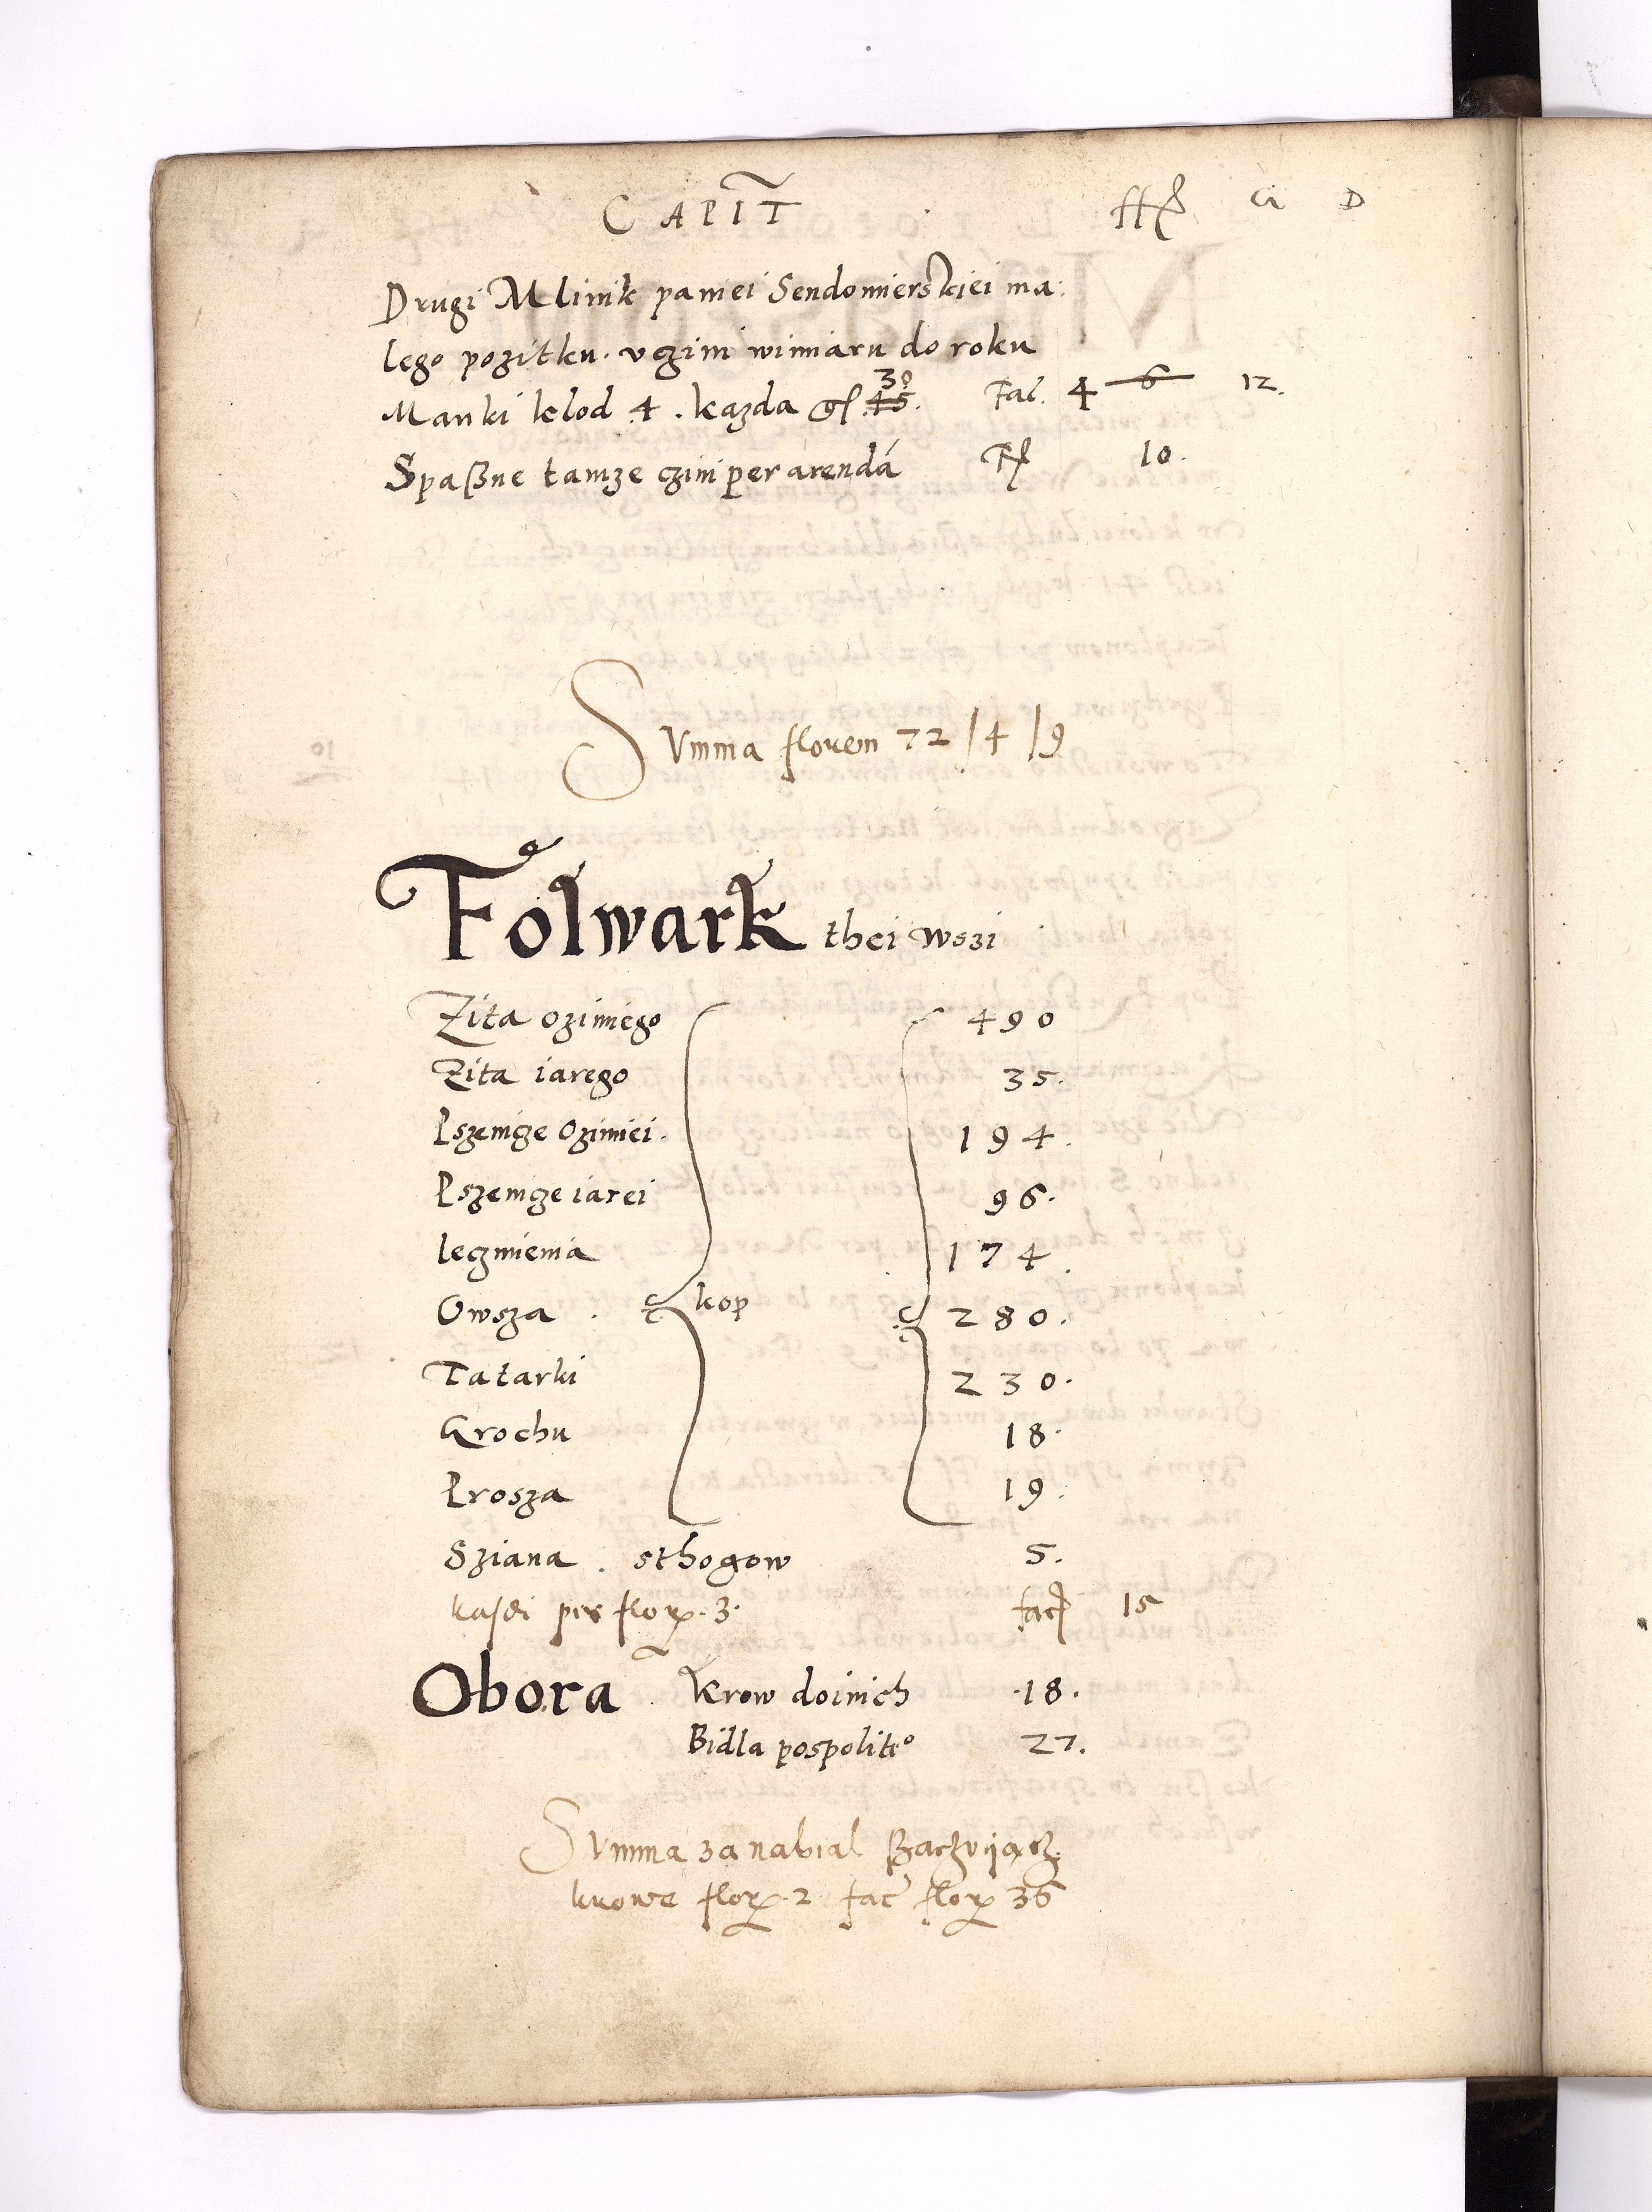 CAPIT ff G D
Drugi Mlinik paniei Sendomierskiei ma:
lego pozitku. vczini wimiaru do roku
Manki klod 4. kazda gl. 30 45. Fac. 4 6 12.
Spaßne tamze czini per arendá 10.
Summa floren 72/4/9
Folwark thei wszi
Zita ozimiego 490
Zita iarego 35.
Pszenicze Ozimiei. 194.
Pszenicze iarei 96.
Ieczmienia 174.
Owsza. kop 280.
Tatarki 230.
Grochu 18.
Prosza 19.
Sziana. sthogow 5.
kasdi per flor. 3. fac 15
Obora. Krow doinich .18.
Bidla pospolite° 27.
Summa za nabial
krowe flor. 2 fac flor 36